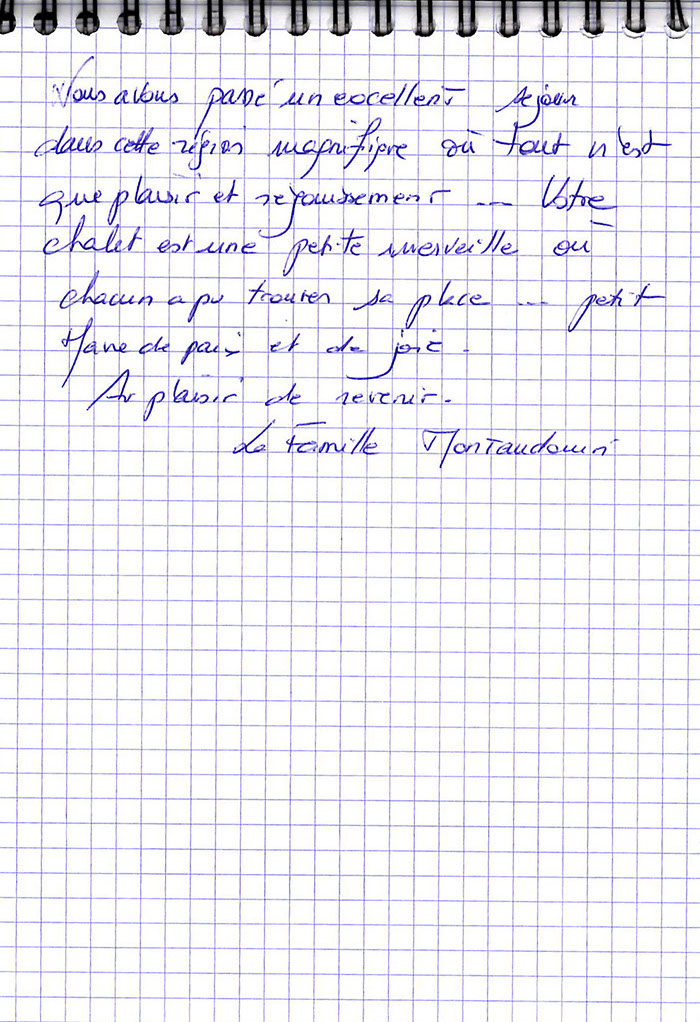 Nous avons passé un excellent séjour
dans cette région magnifique où tout n'est
que plaisir et réjouissement --- Votre
chalet est une petite merveille où
chacun a pu trouver sa place --- petit
Havre de paix et de joie.
Au plaisir de revenir.
La Famille